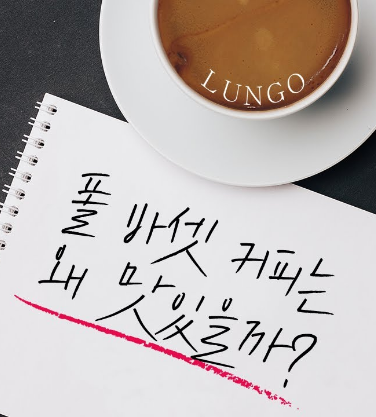 LUNGO
폴 바셋 커피는
왜 맛있을까?